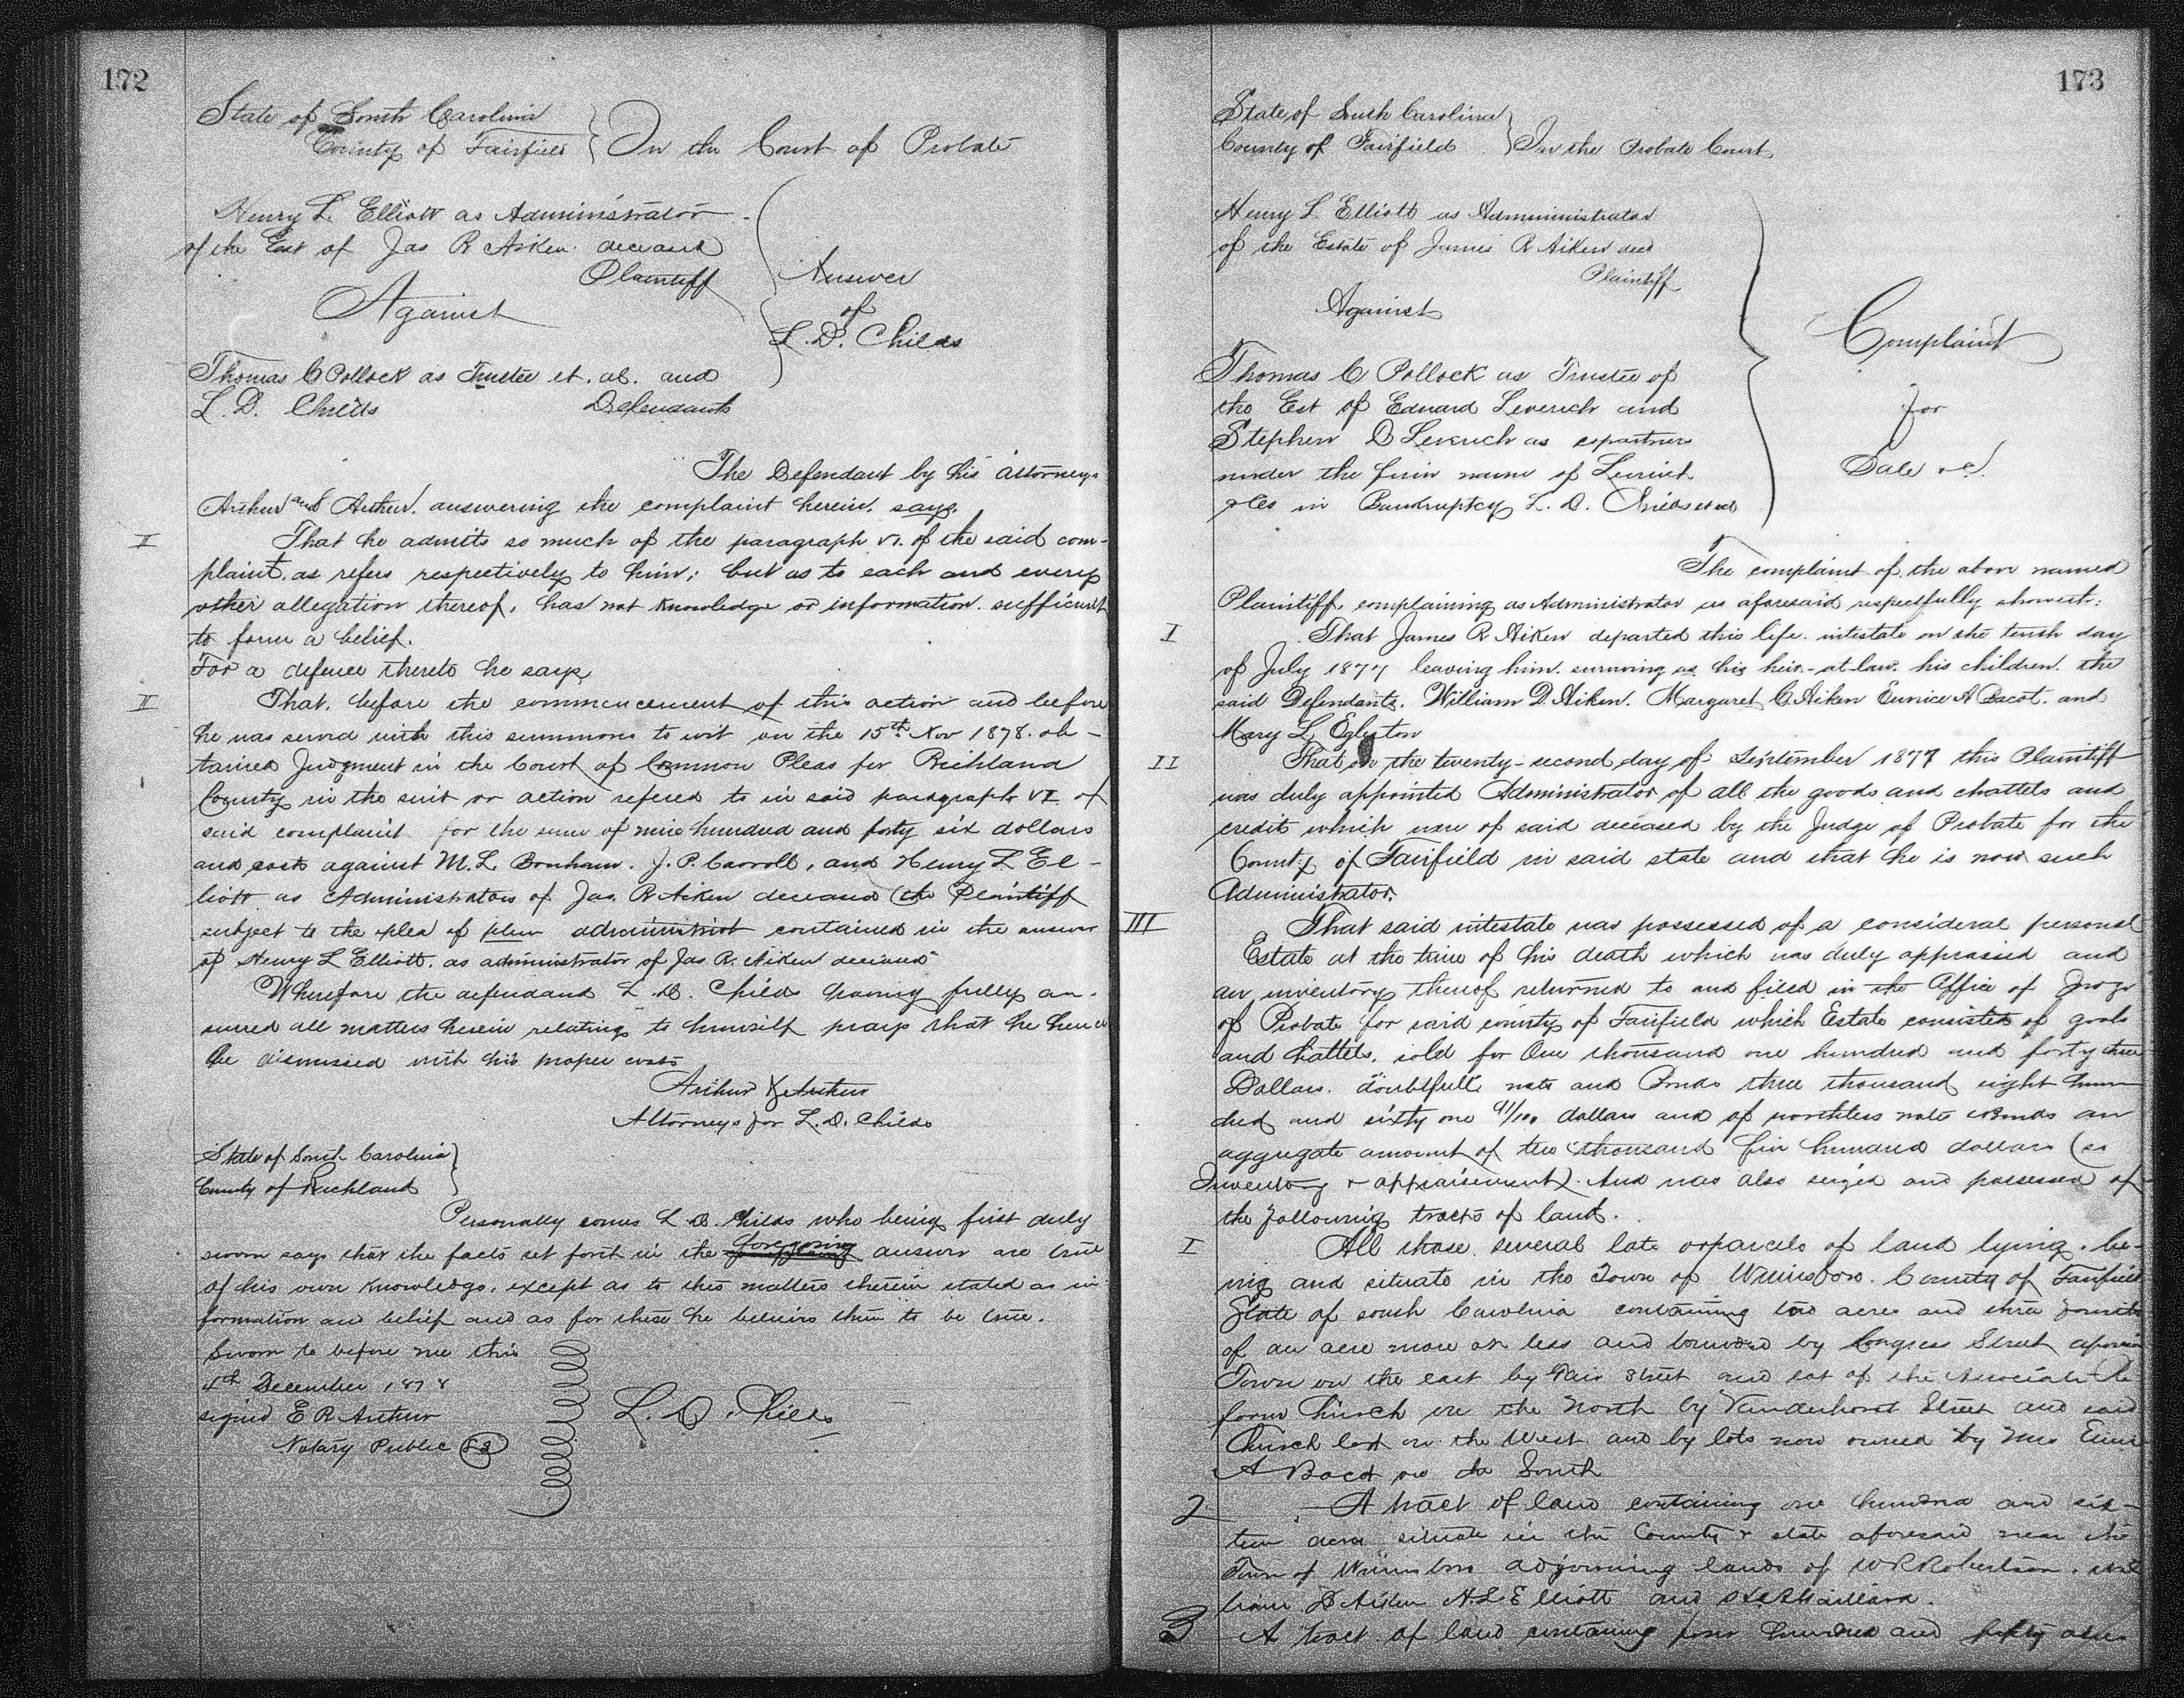 172
State of South Carolina
County of Fairfield } In the Court of Probate
Henry L. Elliott as Administrator
of the Est of Jas R Aiken deceased
Plaintiff
Against
Answer
of
L. D. Childs
Thomas C Pollock as Trustee et. al. and
L. D. Childs Defendants
The Defendant by his attorneys
Arthur and Arthur. answering the complaint herein. says.
I That he admits so much of the paragraph VI. of the said com-
plaint. as refers respectively to him; but as to each and every
other allegation thereof, has not knowledge or information sufficient
to form a belief.
For a defence thereto he says
II That, before the commencement of this action and before
he was served with this summons to wit on the 15th Nov 1878. ob-
tained Judgment in the Court of Common Pleas for Richland
County in the suit or action refered to in said paragraph VI of
said complaint for the sum of nine hundred and forty six dollars
and costs against M. L. Bonham. J. P. Carroll, and Henry L. El-
liott as Administrator of Jas. R Aiken deceased (the Plaintiff
subject to the plea of plene administravit contained in the answer
of Henry L Elliott. as administrator of Jas R. Aiken deceased
Wherefore the defendand L. D. Childs having fully an-
swered all matters herein relating to himself prays that he hence
be dismissed with his proper costs
Arthur & Arthur
Attorneys for L. D. Childs
State of South Carolina }
County of Richland }
Personally comes L. D. Childs who being first duly
sworn says that the facts set forth in the foregoing answer are true
of his own knowledge, except as to the matters therein stated as in
formation and belief and as for these he believes them to be true.
Sworn to before me this
4th December 1878
signed E R Arthur
Notary Public
L. D. Childs
173
State of South Carolina
County of Fairfield } In the Probate Court.
Henry L. Elliott as Admininistrator
of the Estate of James R Aiken decd
Plaintiff
Against
Complaint
for
Sale &c.
Thomas C Pollock as Trustee of
the Est of Edward Leverich and
Stephen D Leverich as copartners
under the firm name of Leverich
& Co in Bankruptcy L. D. Childs et al
The complaint of the above named
Plaintiff, complaining as Administrator as aforesaid respectfully showeth:
I That James R Aiken departed this life. intestate on the tenth day
of July 1877 leaving him. surviving as his heirs-at-law. his children. the
said Defendants. William D. Aiken. Margaret C. Aiken Eunice A Bacot. and
Mary L, Egleton
II That on the twenty-second day of September 1877 this Plaintiff
was duly appointed Administrator of all the goods and chattels and
credits which were of said deceased by the Judge of Probate for the
County of Fairfield in said state and that he is now such
Administrator.
III That said intestate was possessed of a consideral personal
Estate at the time of his death which was duly appraised and
an inventory thereof returned to and filed in the Office of Judge
of Probate for said county of Fairfield which Estate consisted of goods
and chattels. sold for One thousand one hundred and forty three
Dollars. doubtfull notes and Bonds three thousand eight hun
dred and sixty one 91/100 dollars and of worthless notes & Bonds an
aggregate amount of two thousand five hundred dollars (see
Inventory & appraisement). And was also seized and possessed of
the following tracts of land.
I All those several lots or parcels of land lying, be-
ing and situate in the Town of Winnsboro. County of Fairfield
State of south Carolina containing two acres and three fourths
of an acre more or less and bounded by Congress Street
Town on the east by Fair Street and lot of the Associate Re
form Church on the North by Vanderhorst Street and said
Church lot on the West. and by lots now owned by Mrs Eunice
A Bacot on the South
2. A tract of land containing one hundred and six-
teen acres situate in the County & state aforesaid near the
Town of Winnsboro adjoining lands of W R Robertson. Wil
liam D Aiken H. L Elliott and
3 A tract of land containing four hundred and fifty acres